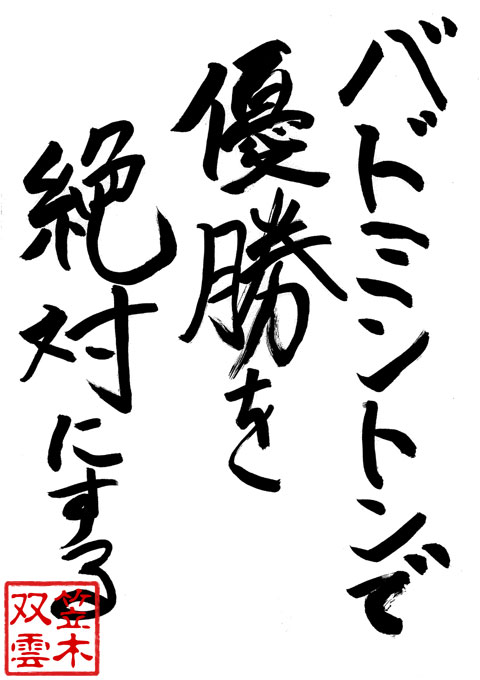 バドミントンで
優勝を
絶対にする
笠木
双雲